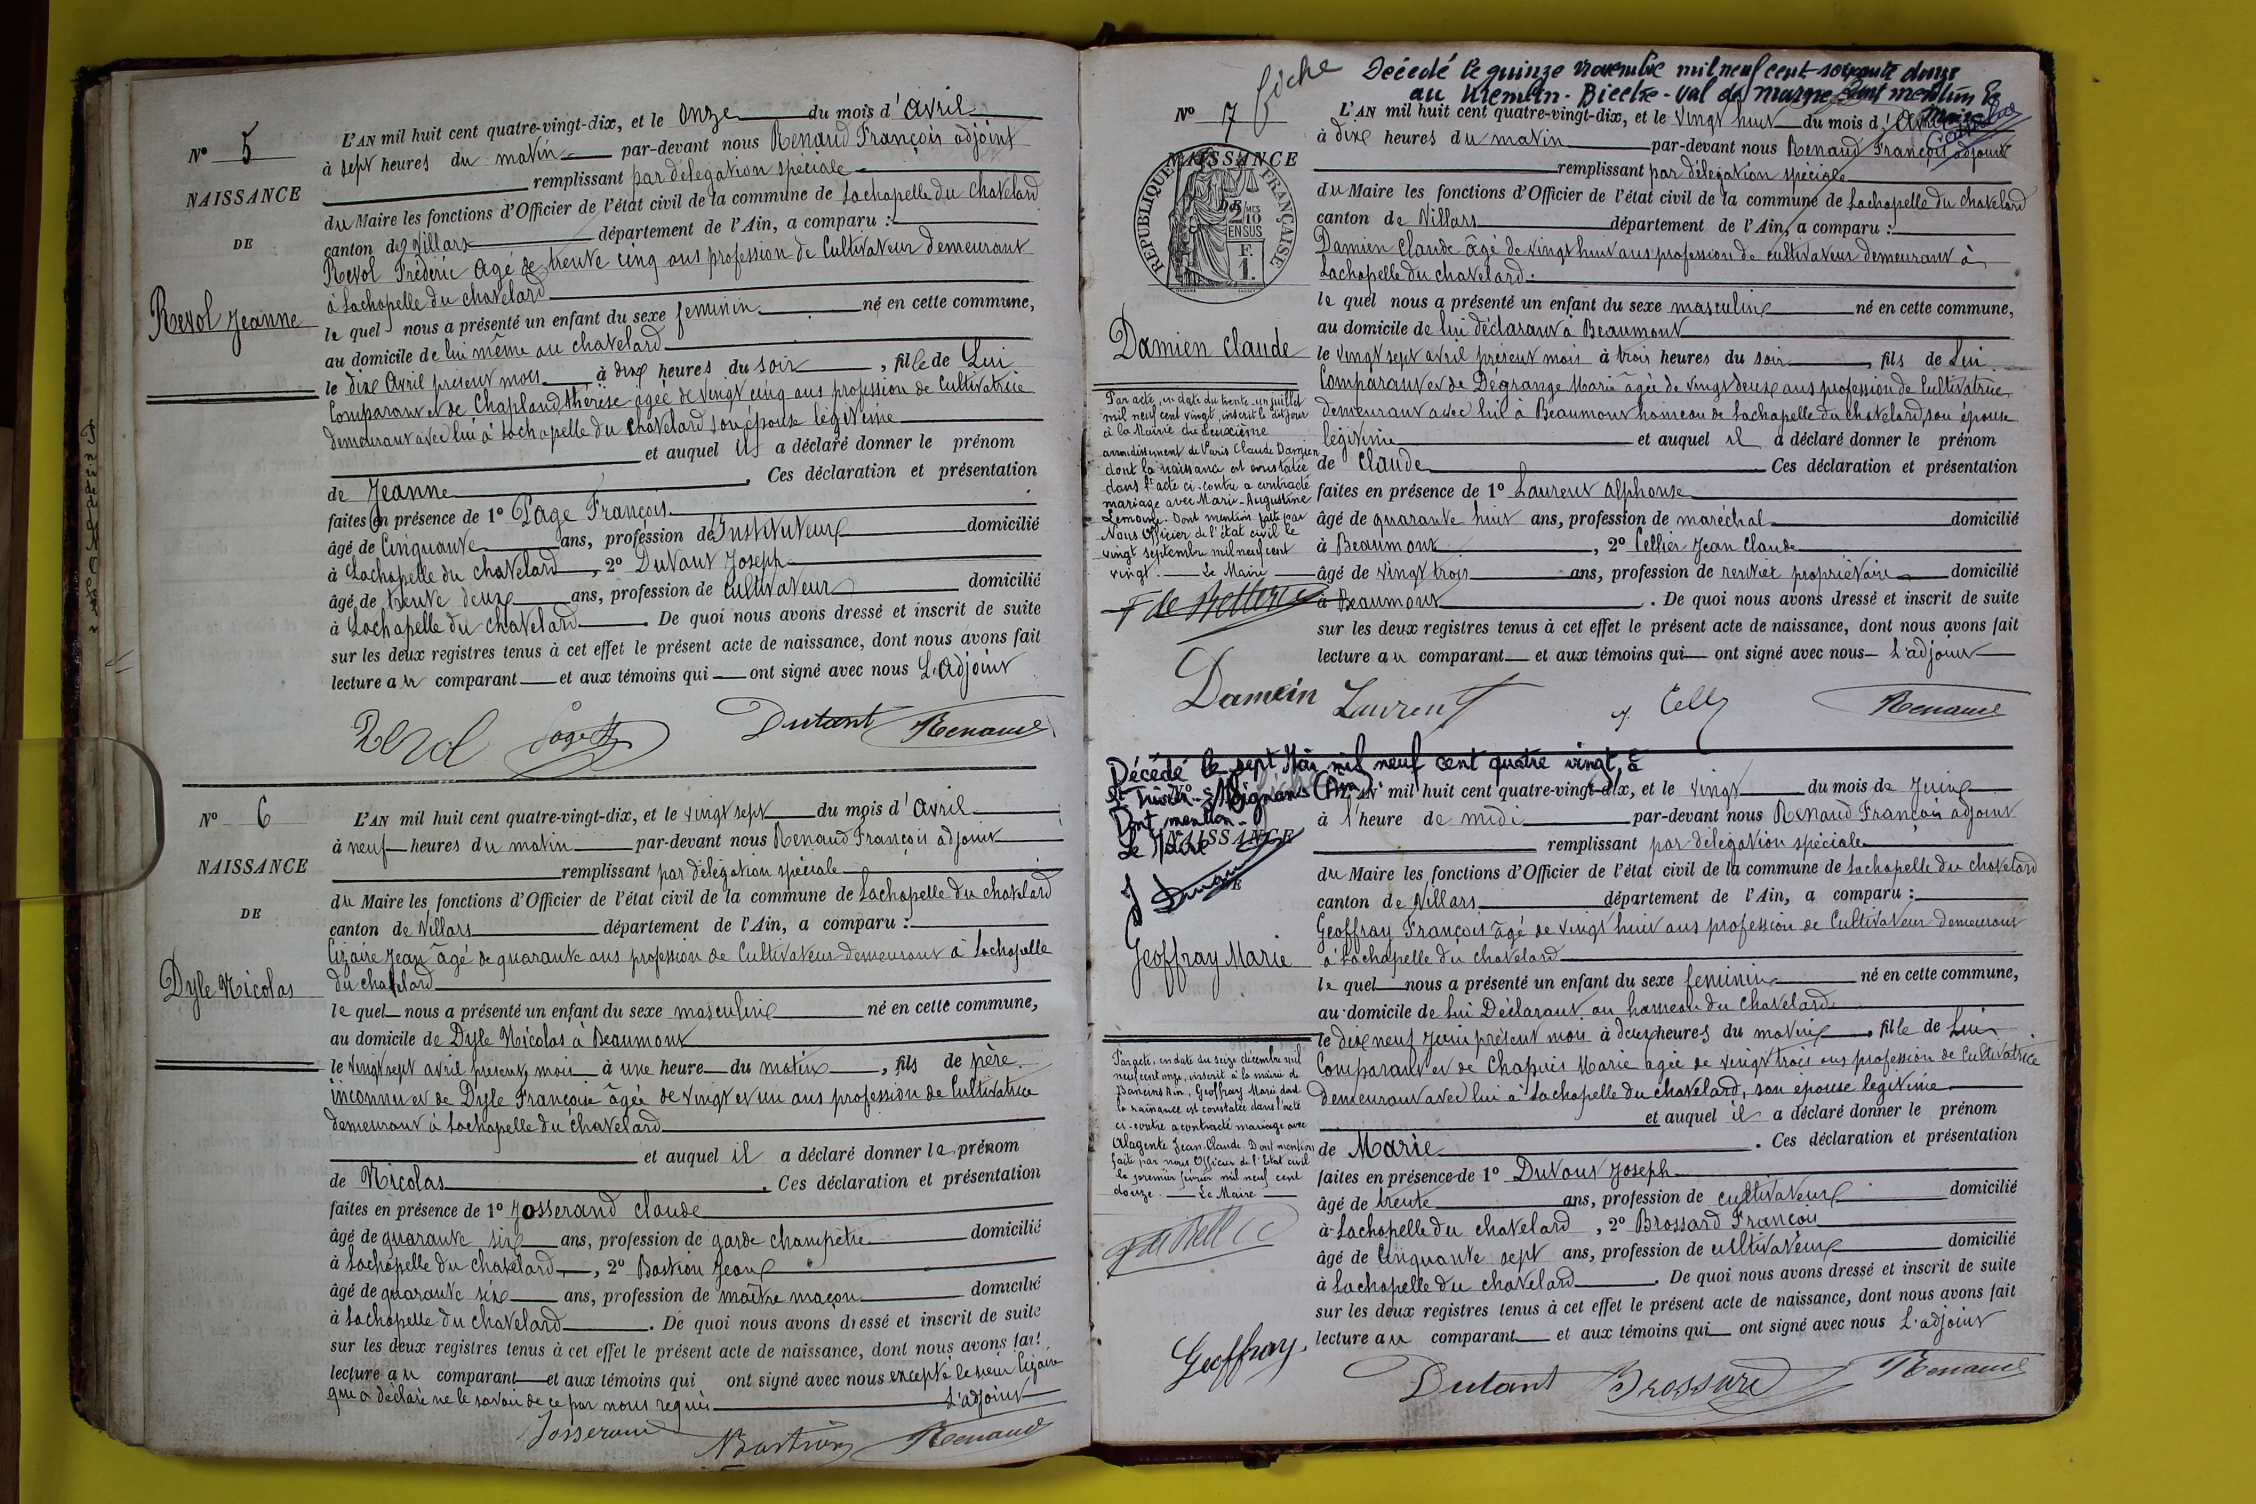 Nº 5
NAISSANCE
DE
Revol Jeanne
L'AN mil huit cent quatre-vingt-dix, et le onze du mois d'avril
à sept heures du matin par-devant nous Renaud François adjoint
remplissant par délégation spéciale
du Maire les fonctions d'Officier de l'état civil de la commune de Lachapelle du chatelard
canton de Villars département de l'Ain, a comparu :
Revol Frédéric agé de trente cinq ans profession de Cultivateur demeurant
à Lachapelle du chatelard
le quel nous a présenté un enfant du sexe feminin né en cette commune,
au domicile de lui même au chatelard
le dix Avril présent mois à dix heures du soir, fille de Lui
Comparant et de Chapland thérèse agée de vingt cinq ans profession de Cultivatrice
demeurant avec lui à Lachapelle du chatelard son épouse légitime
et auquel il a déclaré donner le prénom
de Jeanne. Ces déclaration et présentation
faites en présence de 1º Page François
âgé de Cinquante ans, profession de Instituteur domicilié
à Lachapelle du chatelard, 2º Dutant Joseph
âgé de trente deux ans, profession de cultivateur domicilié
à Lachapelle du chatelard. De quoi nous avons dressé et inscrit de suite
sur les deux registres tenus à cet effet le présent acte de naissance, dont nous avons fait
lecture au comparant et aux témoins qui ont signé avec nous L'Adjoint
Revol Page Dutant Renaud
Nº 6
NAISSANCE
DE
Dyle Nicolas
L'AN mil huit cent quatre-vingt-dix, et le vingt sept du mois d'avril
à neuf heures du matin par-devant nous Renaud François adjoint
remplissant par délégation spéciale
du Maire les fonctions d'Officier de l'état civil de la commune de Lachapelle du chatelard
canton de Villars département de l'Ain, a comparu :
Lizaire Jean âgé de quarante ans profession de Cultivateur demeurant à Lachapelle
du chatelard
le quel nous a présenté un enfant du sexe masculin né en cette commune,
au domicile de Dyle Nicolas à Beaumont
le vingt sept avril présent mois à une heure du matin, fils de père
inconnu et de Dyle Françoise âgée de vingt et un ans profession de Cultivatrice
demeurant à Lachapelle du chatelard
et auquel il a déclaré donner le prénom
de Nicolas. Ces déclaration et présentation
faites en présence de 1º Josserand claude
âgé de quarante six ans, profession de garde champêtre domicilié
à Lachapelle du chatelard, 2º Bastion Jean
âgé de quarante six ans, profession de maître maçon domicilié
à Lachapelle du chatelard. De quoi nous avons dressé et inscrit de suite
sur les deux registres tenus à cet effet le présent acte de naissance, dont nous avons fait
lecture au comparant et aux témoins qui ont signé avec nous excepté le sieur Lizaire
qui a déclaré ne le savoir de ce par nous requis L'adjoint
Josserand Bastion Renaud
fiche
Décédé le quinze novembre mil neuf cent soixante douze
au Kremlin-Bicetre - Val de Marne dont mention le
Maire
Nº 7
NAISSANCE
REPUBLIQUE FRANÇAISE
2/10 EN SUS
F.
1.
Damien claude
Par acte, en date du trente-un juillet
mil neuf cent vingt, inscrit le dit jour
à la Mairie du deuxième
arrondissement de Paris Claude Damien
dont la naissance est constatée
dans l'acte ci-contre a contracté
mariage avec Marie-Augustine
Lemoine. Dont mention faite par
Nous Officier de l'état civil le
vingt septembre mil neuf cent
vingt. Le Maire
L'AN mil huit cent quatre-vingt-dix, et le vingt huit du mois d'Avril
à dix heures du matin par-devant nous Renaud François adjoint
remplissant par délégation spéciale
du Maire les fonctions d'Officier de l'état civil de la commune de Lachapelle du chatelard
canton de Villars département de l'Ain, a comparu :
Damien Claude âgé de vingt huit ans profession de cultivateur demeurant à
Lachapelle du chatelard.
le quel nous a présenté un enfant du sexe masculin né en cette commune,
au domicile de lui déclarant à Beaumont
le vingt sept avril présent mois à trois heures du soir, fils de Lui
Comparant et de Dégrange Marie âgée de vingt deux ans profession de Cultivatrice
demeurant avec lui à Beaumont hameau de Lachapelle du chatelard, son épouse
légitime et auquel il a déclaré donner le prénom
de Claude Ces déclaration et présentation
faites en présence de 1º Laurent alphonse
âgé de quarante huit ans, profession de maréchal domicilié
à Beaumont, 2º Cellier Jean Claude
âgé de vingt trois ans, profession de rentier propriétaire domicilié
à Beaumont. De quoi nous avons dressé et inscrit de suite
sur les deux registres tenus à cet effet le présent acte de naissance, dont nous avons fait
lecture au comparant et aux témoins qui ont signé avec nous L'adjoint
Damien Laurent J. Cell Renaud
Décédé le sept Mai mil neuf cent quatre vingt, à
Dont mention
Le Maire
NAISSANCE
DE
Geoffray Marie
Par acte, en date du seize décembre mil
neuf cent onze, inscrit à la mairie de
Ain, Geoffray Marie dont
la naissance est constatée dans l'acte
ci-contre a contracté mariage avec
Alagente Jean Claude. Dont mention
faite par nous Officier de l'Etat civil
le premier février mil neuf cent
douze. Le Maire
L'AN mil huit cent quatre-vingt-dix, et le vingt du mois de Juin
à l'heure de midi par-devant nous Renaud François adjoint
remplissant par délégation spéciale
du Maire les fonctions d'Officier de l'état civil de la commune de Lachapelle du chatelard
canton de Villars département de l'Ain, a comparu :
Geoffray François âgé de vingt huit ans profession de Cultivateur demeurant
à Lachapelle du chatelard
le quel nous a présenté un enfant du sexe feminin né en cette commune,
au domicile de Lui Déclarant au hameau du Chatelard
le dix neuf Juin présent mois à deux heures du matin, fille de Lui
Comparant et de Chapuis Marie agée de vingt trois ans profession de Cultivatrice
demeurant avec lui à Lachapelle du chatelard, son épouse légitime
et auquel il a déclaré donner le prénom
de Marie. Ces déclaration et présentation
faites en présence de 1º Dutant Joseph
âgé de trente ans, profession de cultivateur domicilié
à Lachapelle du chatelard, 2º Brossard François
âgé de Cinquante sept ans, profession de cultivateur domicilié
à Lachapelle du chatelard. De quoi nous avons dressé et inscrit de suite
sur les deux registres tenus à cet effet le présent acte de naissance, dont nous avons fait
lecture au comparant et aux témoins qui ont signé avec nous L'adjoint
Geoffray Dutant Brossard Renaud